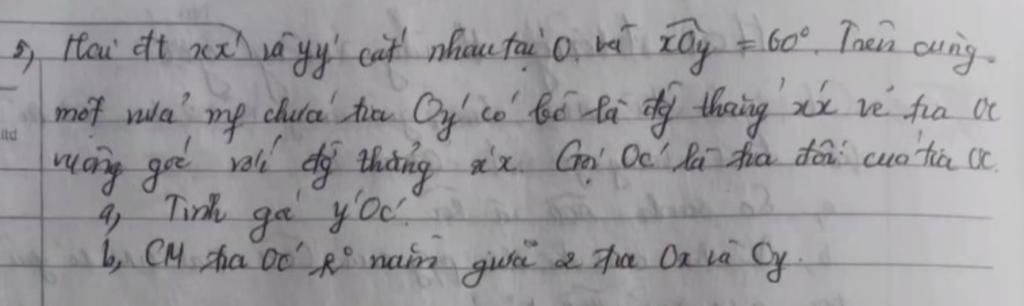 5, Hai đt xx' và yy' cắt nhau tại O. và xOy = 60°. Trên cùng
một nửa mp chứa tia Oy có bờ là đg thẳng x'x vẽ tia Oc
vuông góc với đg thẳng x'x. Gọi Oc' là tia đối của tia Oc.
a, Tính góc y'Oc'.
b, CM tia Oc' k° nằm giữa 2 tia Ox và Oy.